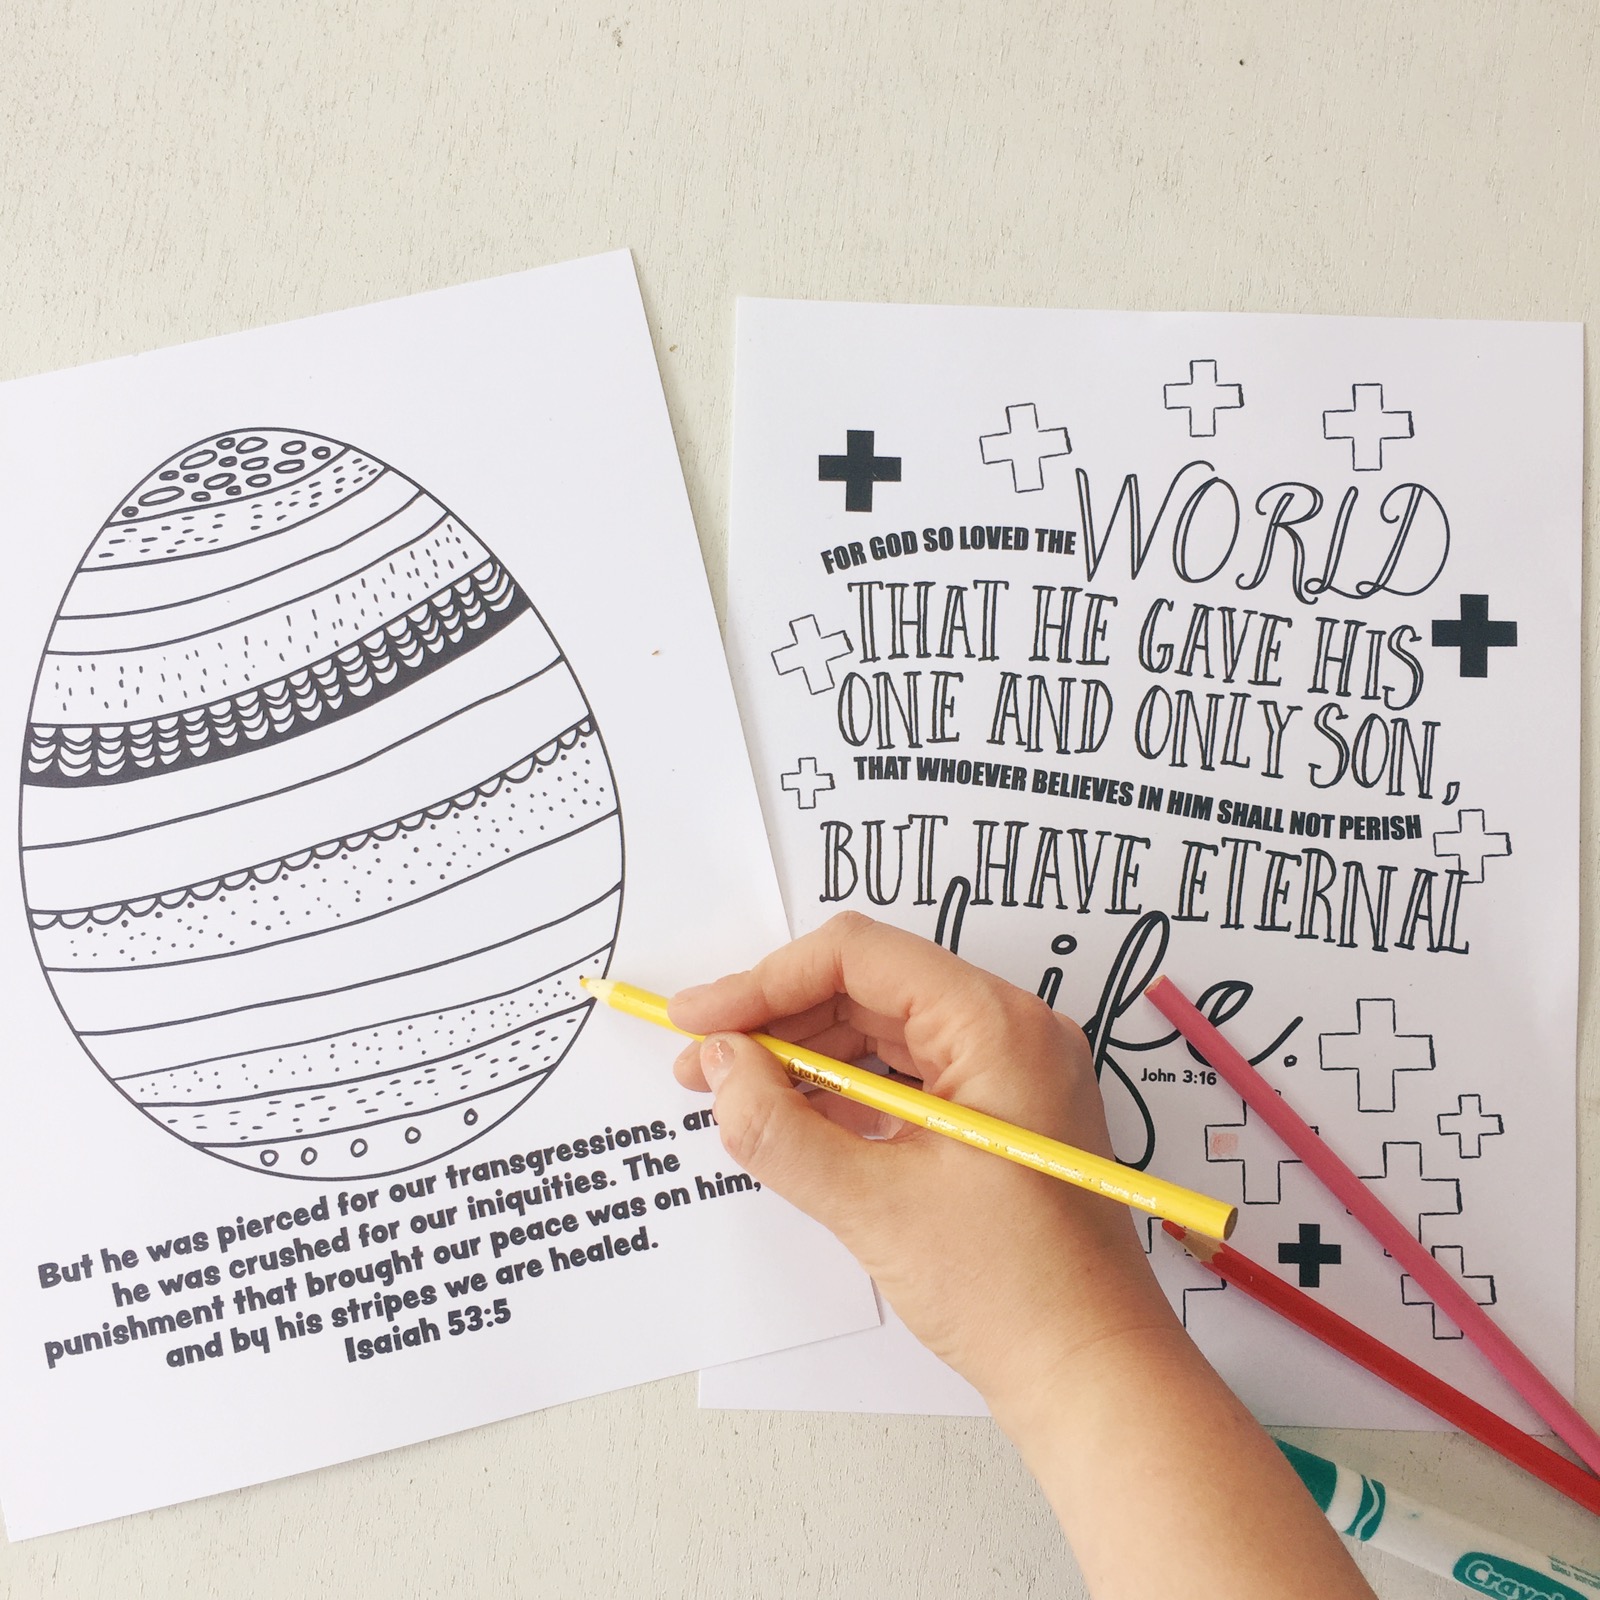 But he was pierced for our transgressions, an
he was crushed for our iniquities. The
punishment that brought our peace was on him,
and by his stripes we are healed.
Isaiah 53:5
FOR GOD SO LOVED THE WORLD
THAT HE GAVE HIS
ONE AND ONLY SON,
THAT WHOEVER BELIEVES IN HIM SHALL NOT PERISH
BUT HAVE ETERNAL
Life.
John 3:16
Crayola
Crayol